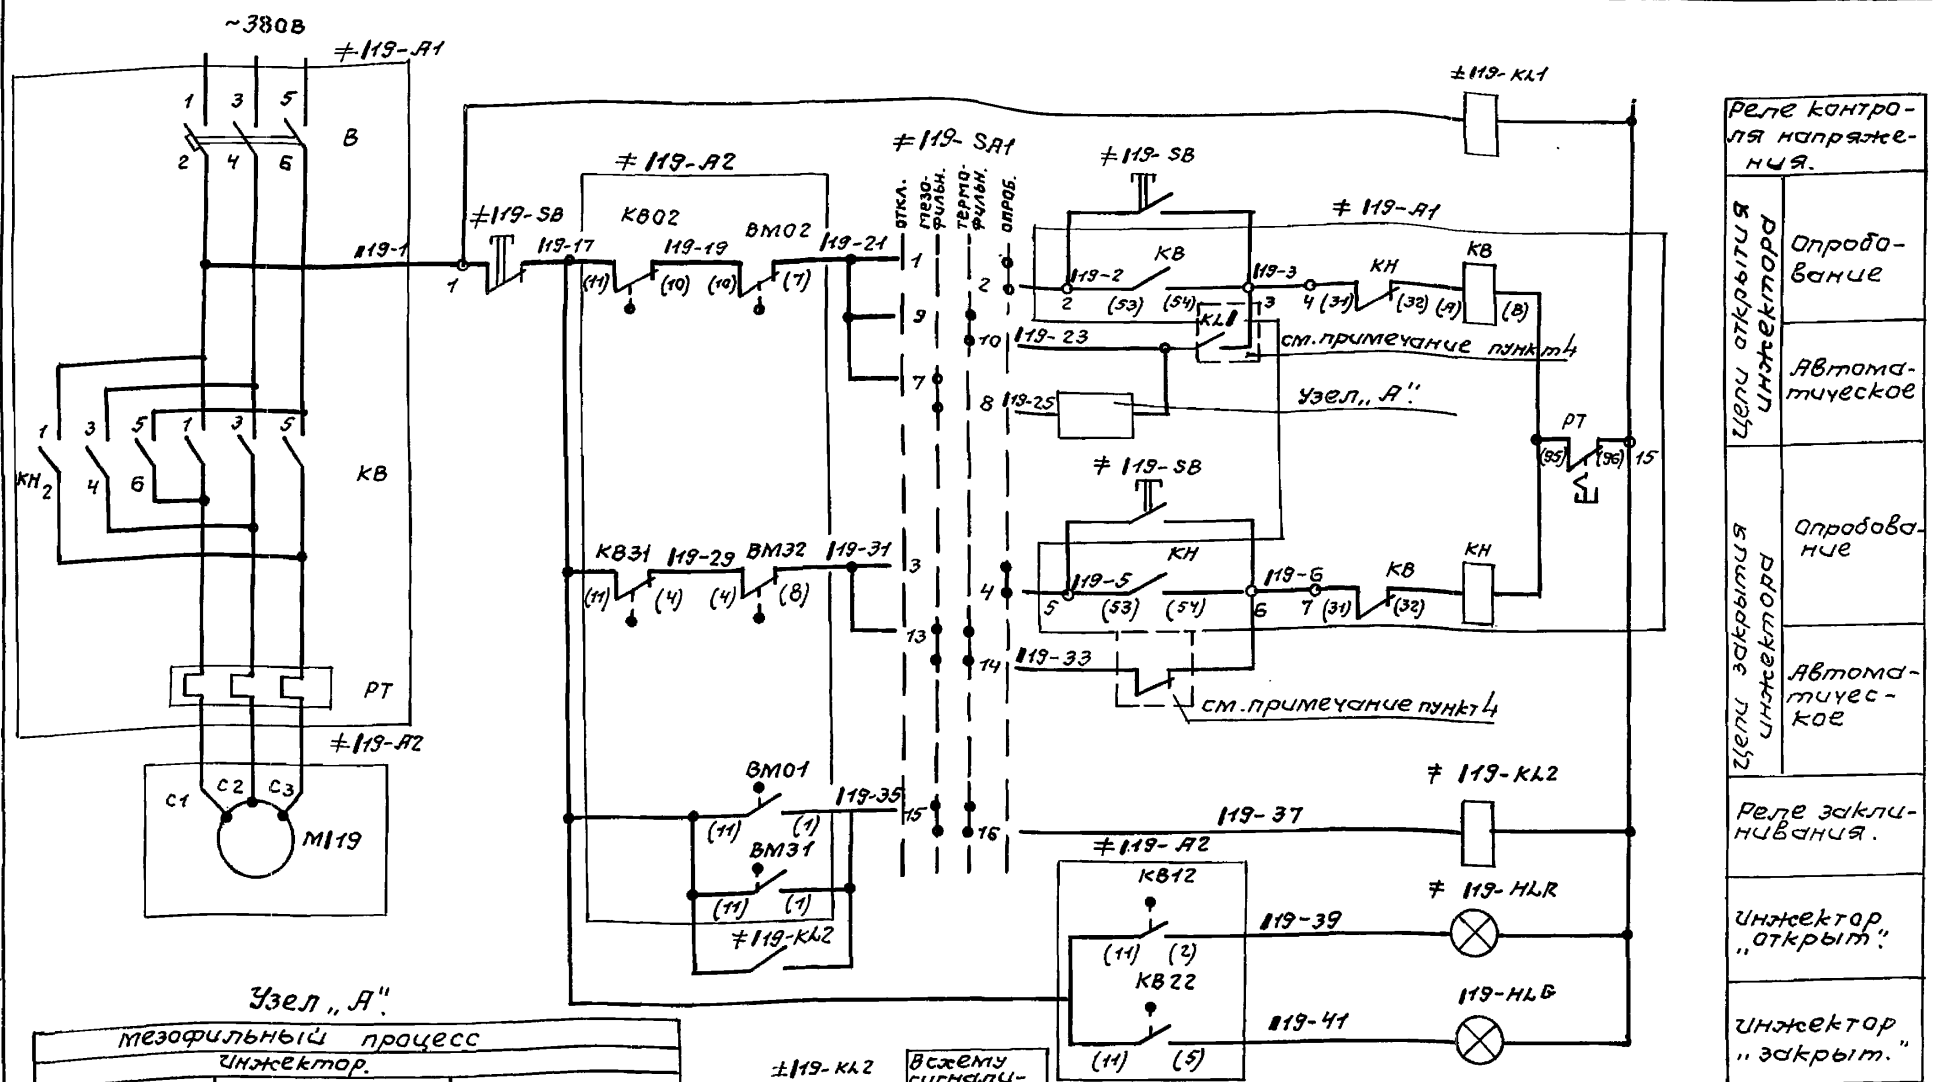 ~380В
≠ I19-A1
1 3 5
В
2 4 6
I19-1
1 3 5 1 3 5
КН 2 4 6
КВ
РТ
≠ I19-A2
С1 С2 С3
МI19
≠ I19-SB
1
I19-17
≠ I19-A2
КВ02
I19-19
ВМ02
I19-21
(11) (10) (10) (7)
КВ31 I19-29 ВМ32 I19-31
(11) (4) (4) (8)
ВМ01
I19-35
(11) (1)
ВМ31
(11) (1)
≠ I19-KL2
≠ I19-SA1
откл.
мезо-
фильн.
термо-
фильн.
опроб.
1
2
9
10
7
8
3
4
13
14
15
16
± I19-KL1
≠ I19-SB
≠ I19-A1
I19-2 КВ I19-3 КН КВ
2 (53) (54) 3 4 (31) (32) (А) (В)
KL1
I19-23
см. примечание пункт 4
I19-25
Узел „А".
РТ
(95) (96) 15
≠ I19-SB
I19-5 КН I19-6 КВ КН
5 (53) (54) 6 7 (31) (32)
I19-33
см. примечание пункт 4
≠ I19-KL2
I19-37
≠ I19-A2
КВ12
≠ I19-HLR
I19-39
(11) (2)
КВ22
I19-HLG
I19-41
(11) (5)
Реле контро-
ля напряже-
ния.
Цепи открытия
инжектора
Опробо-
вание
Автома-
тическое
Цепи закрытия
инжектора
Опробова-
ние
Автома-
тичес-
кое
Реле закли-
нивания.
Инжектор
„открыт".
Инжектор
„закрыт."
Узел „А".
Мезофильный процесс
Инжектор.
± I19-KL2
В схему
сигнали-